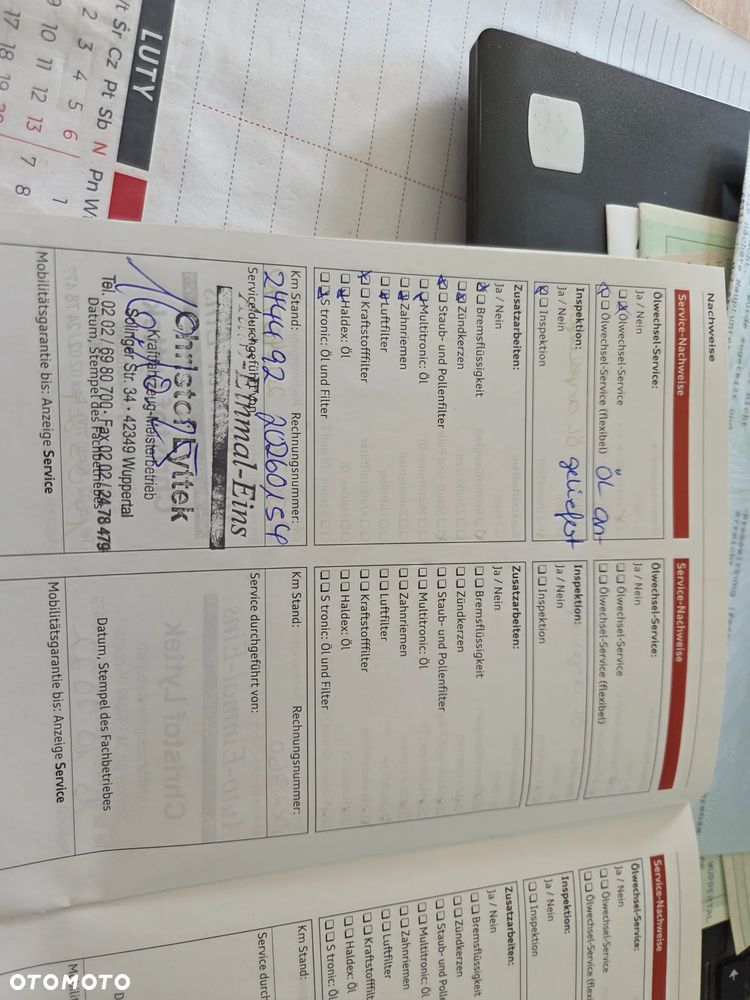 LUTY
Pt Śr Cz Pt Sb N Pn W
2 3 4 5 6 7 8
10 11 12 13
17 18 19 20
Nachweise
Service-Nachweise
Ölwechsel-Service:
Ja / Nein
Ölwechsel-Service
Ölwechsel-Service (flexibel)
ÖL an-
geliefert
Inspektion:
Ja / Nein
Inspektion
Zusatzarbeiten:
Ja / Nein
Bremsflüssigkeit
Zündkerzen
Staub- und Pollenfilter
Multitronic: Öl
Zahnriemen
Luftfilter
Kraftstofffilter
Haldex: Öl
S tronic: Öl und Filter
Km Stand: Rechnungsnummer:
244492 20260154
Service durchgeführt von:
-Einmal-Eins
Christof Lyttek
Kraftfahrzeug-Meisterbetrieb
Solinger Str. 34 · 42349 Wuppertal
Tel. 02 02 / 69 80 700 · Fax 02 02 / 24 78 479
Datum, Stempel des Fachbetriebes
Mobilitätsgarantie bis: Anzeige Service
Service-Nachweise
Ölwechsel-Service:
Ja / Nein
Ölwechsel-Service
Ölwechsel-Service (flexibel)
Inspektion:
Ja / Nein
Inspektion
Zusatzarbeiten:
Ja / Nein
Bremsflüssigkeit
Zündkerzen
Staub- und Pollenfilter
Multitronic: Öl
Zahnriemen
Luftfilter
Kraftstofffilter
Haldex: Öl
S tronic: Öl und Filter
Km Stand: Rechnungsnummer:
Service durchgeführt von:
Datum, Stempel des Fachbetriebes
Mobilitätsgarantie bis: Anzeige Service
Service-Nachweise
Ölwechsel-Service:
Ja / Nein
Ölwechsel-Service
Ölwechsel-Service (flexi
Inspektion:
Ja / Nein
Inspektion
Zusatzarbeiten:
Ja / Nein
Bremsflüssigkeit
Zündkerzen
Staub- und Pollenf
Multitronic: Öl
Zahnriemen
Luftfilter
Kraftstofffilt
Haldex: Öl
S tronic: Öl
Km Stand:
Service durch
OTOMOTO